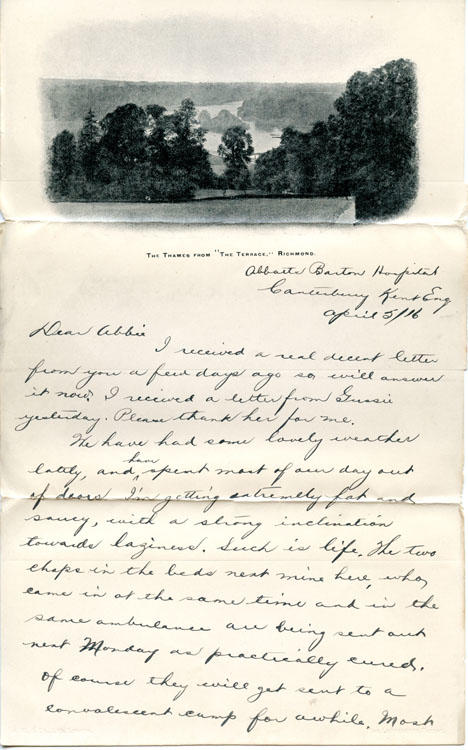 The Thames from "The Terrace," Richmond.
Abbots Barton Hospital
Canterbury Kent Eng
April 5/16
Dear Abbie
I received a real decent letter
from you a few days ago so will answer
it now. I recieved a letter from Gussie
yesterday. Please thank her for me.
We have had some lovely weather
lately, and have spent most of our day out
of doors I'm getting extremely fat and
saucy, with a strong inclination
towards laziness. Such is life. The two
chaps in the beds next mine here, who,
came in at the same time and in the
same ambulance are being sent out
next Monday as practically cured.
Of course they will get sent to a
convalescent camp for awhile. Most